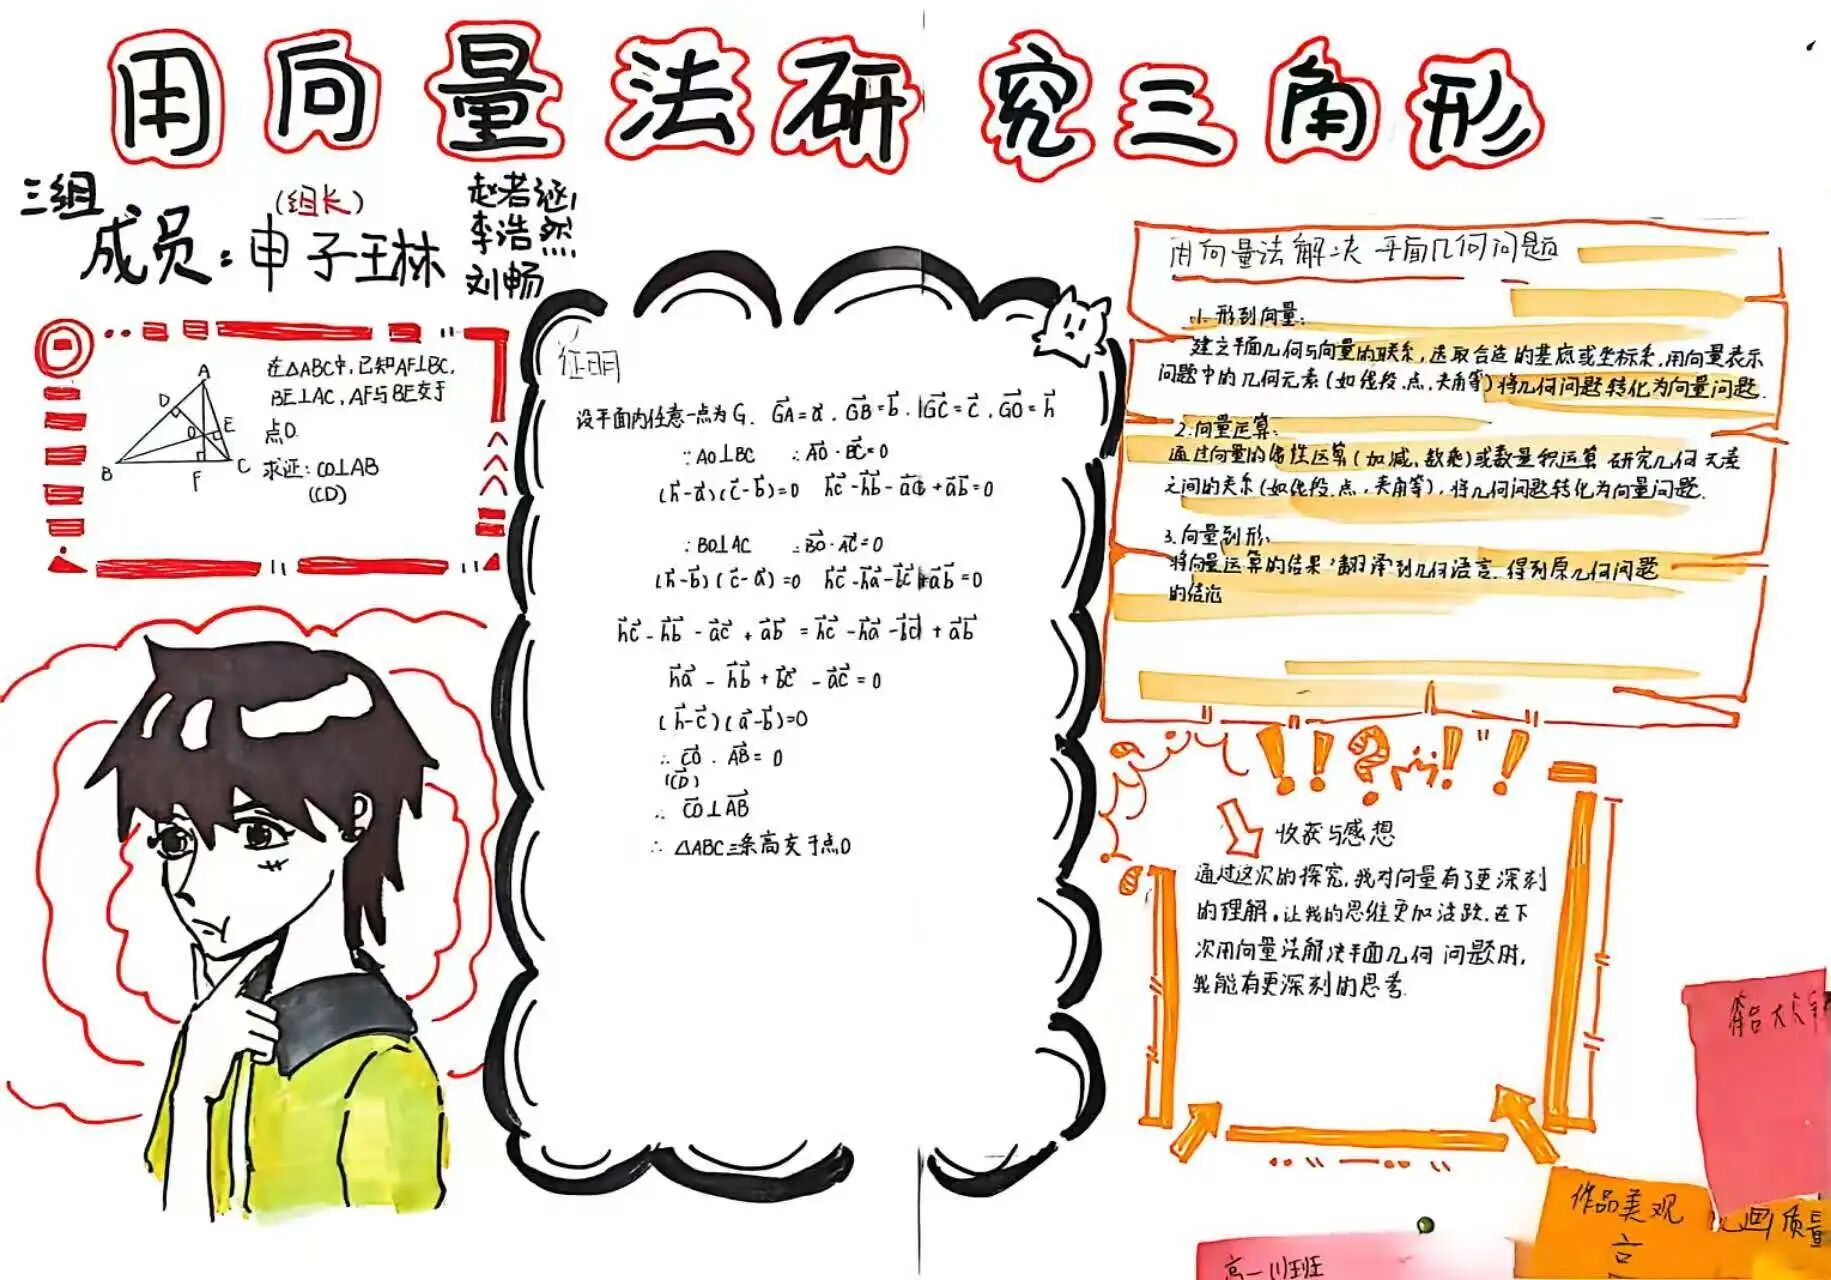 用向量法研究三角形
三组
成员：申子玉林
(组长)
赵若涵
李浩然
刘畅
在△ABC中,已知AF⊥BC,
BE⊥AC,AF与BE交于
点O.
求证:CO⊥AB
(CD)
A
D
O
E
B
F
C
证明
设平面内任意一点为G. G⃗A=a⃗. G⃗B=b⃗. G⃗C=c⃗. G⃗O=h⃗
∵AO⊥BC ∴A⃗O·B⃗C=0
(h⃗-a⃗)(c⃗-b⃗)=0 h⃗c⃗-h⃗b⃗-a⃗c⃗+a⃗b⃗=0
∵BO⊥AC ∴B⃗O·A⃗C=0
(h⃗-b⃗)(c⃗-a⃗)=0 h⃗c⃗-h⃗a⃗-b⃗c⃗+a⃗b⃗=0
h⃗c⃗-h⃗b⃗-a⃗c⃗+a⃗b⃗=h⃗c⃗-h⃗a⃗-b⃗c⃗+a⃗b⃗
h⃗a⃗-h⃗b⃗+b⃗c⃗-a⃗c⃗=0
(h⃗-c⃗)(a⃗-b⃗)=0
∴C⃗O·A⃗B=0
(C⃗D)
∴C⃗O⊥A⃗B
∴△ABC三条高交于点O
用向量法解决平面几何问题
1.形到向量:
建立平面几何与向量的联系,选取合适的基底或坐标系,用向量表示
问题中的几何元素(如线段,点,夹角等)将几何问题转化为向量问题.
2.向量运算:
通过向量的线性运算(加减、数乘)或数量积运算 研究几何元素
之间的关系(如线段,点,夹角等),将几何问题转化为向量问题.
3.向量到形:
将向量运算的结果"翻译"到几何语言,得到原几何问题
的结论
!!?!!
收获与感想
通过这次的探究,我对向量有了更深刻
的理解,让我的思维更加活跃.在下
次用向量法解决平面几何问题时,
我能有更深刻的思考.
作品美观
画质量
高一
班